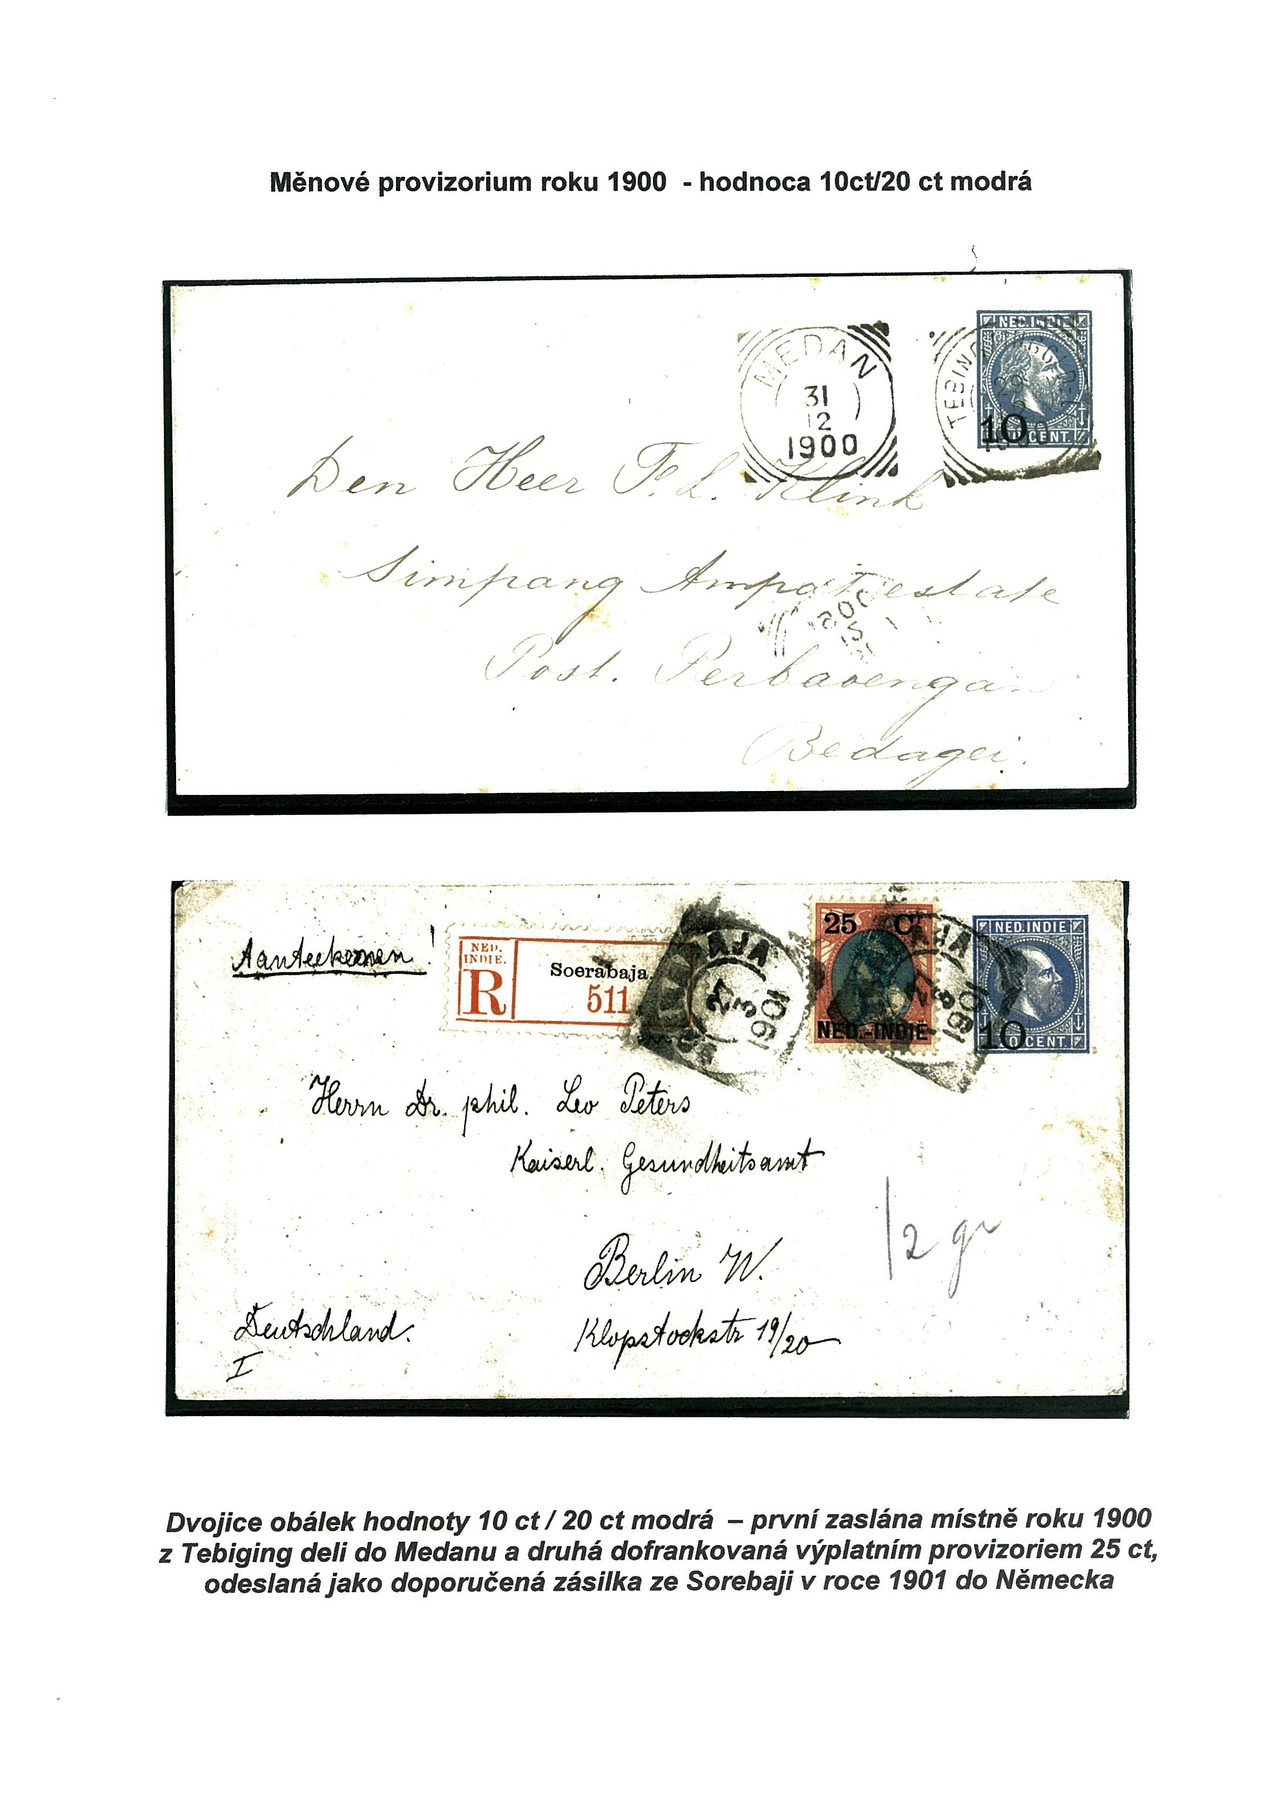 Měnové provizorium roku 1900 - hodnoca 10ct/20 ct modrá
NED. INDIE
MEDAN
31
12
1900
TEBING
29
1900
10
CENT.
Den Heer F. L. Klink
Simpang Ampat estate
Post. Perbaoengan
Bedagei.
Aanteekenen!
NED.
INDIE.
R
Soerabaja
511
AJA
27
3
1901
25 C
NED.-INDIË
AJA
1901
NED. INDIE
10
0 CENT.
Herrn Dr. phil. Leo Peters
Kaiserl. Gesundheitsamt
Berlin W.
Klopstockstr 19/20
Deutschland.
I
12 gr
Dvojice obálek hodnoty 10 ct / 20 ct modrá – první zaslána místně roku 1900
z Tebiging deli do Medanu a druhá dofrankovaná výplatním provizoriem 25 ct,
odeslaná jako doporučená zásilka ze Sorebaji v roce 1901 do Německa